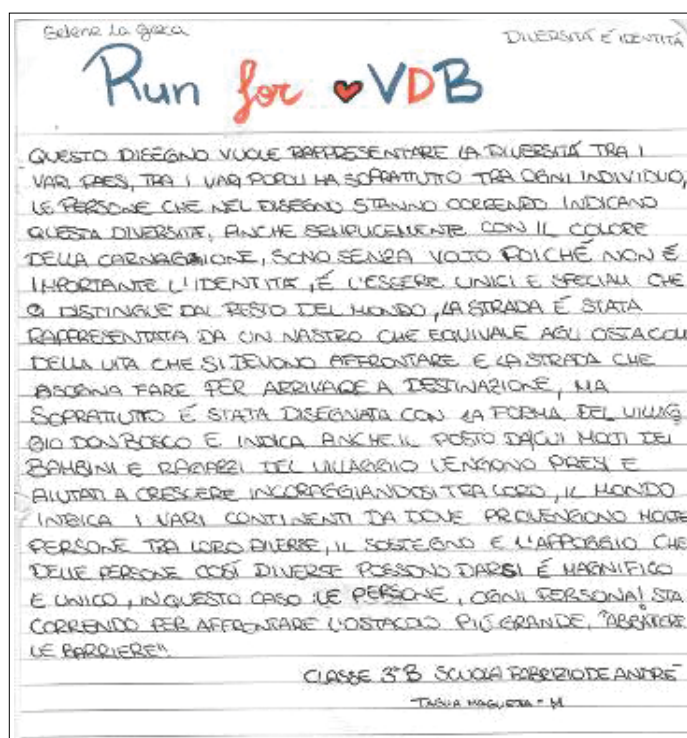 Selene La Greca
DIVERSITÁ É IDENTITÁ
Run for VDB
QUESTO DISEGNO VUOLE RAPPRESENTARE LA DIVERSITÁ TRA I
VARI PAESI, TRA I VARI POPOLI MA SOPRATTUTTO TRA OGNI INDIVIDUO,
LE PERSONE CHE NEL DISEGNO STANNO CORRENDO INDICANO
QUESTA DIVERSITÁ, ANCHE SEMPLICEMENTE CON IL COLORE
DELLA CARNAGIONE, SONO SENZA VOLTO POICHÉ NON É
IMPORTANTE L'IDENTITÁ, É L'ESSERE UNICI E SPECIALI CHE
CI DISTINGUE DAL RESTO DEL MONDO, LA STRADA É STATA
RAPPRESENTATA DA UN NASTRO CHE EQUIVALE AGLI OSTACOLI
DELLA VITA CHE SI DEVONO AFFRONTARE E LA STRADA CHE
BISOGNA FARE PER ARRIVARE A DESTINAZIONE, MA
SOPRATTUTTO É STATA DISEGNATA CON LA FORMA DEL VILLAG
GIO DON BOSCO E INDICA ANCHE IL POSTO DA CUI MOLTI DEI
BAMBINI E RAGAZZI DEL VILLAGGIO VENGONO PRESI E
AIUTATI A CRESCERE INCORAGGIANDOSI TRA LORO, IL MONDO
INDICA I VARI CONTINENTI DA DOVE PROVENGONO MOLTE
PERSONE TRA LORO DIVERSE, IL SOSTEGNO E L'APPOGGIO CHE
DELLE PERSONE COSÍ DIVERSE POSSONO DARSI É MAGNIFICO
E UNICO, IN QUESTO CASO LE PERSONE, OGNI PERSONA! STA
CORRENDO PER AFFRONTARE L'OSTACOLO PIÚ GRANDE, "ABBATTERE
LE BARRIERE".
CLASSE 3°B SCUOLA FABRIZIO DE ANDRÉ
TAGLIA MAGLIETTA - M